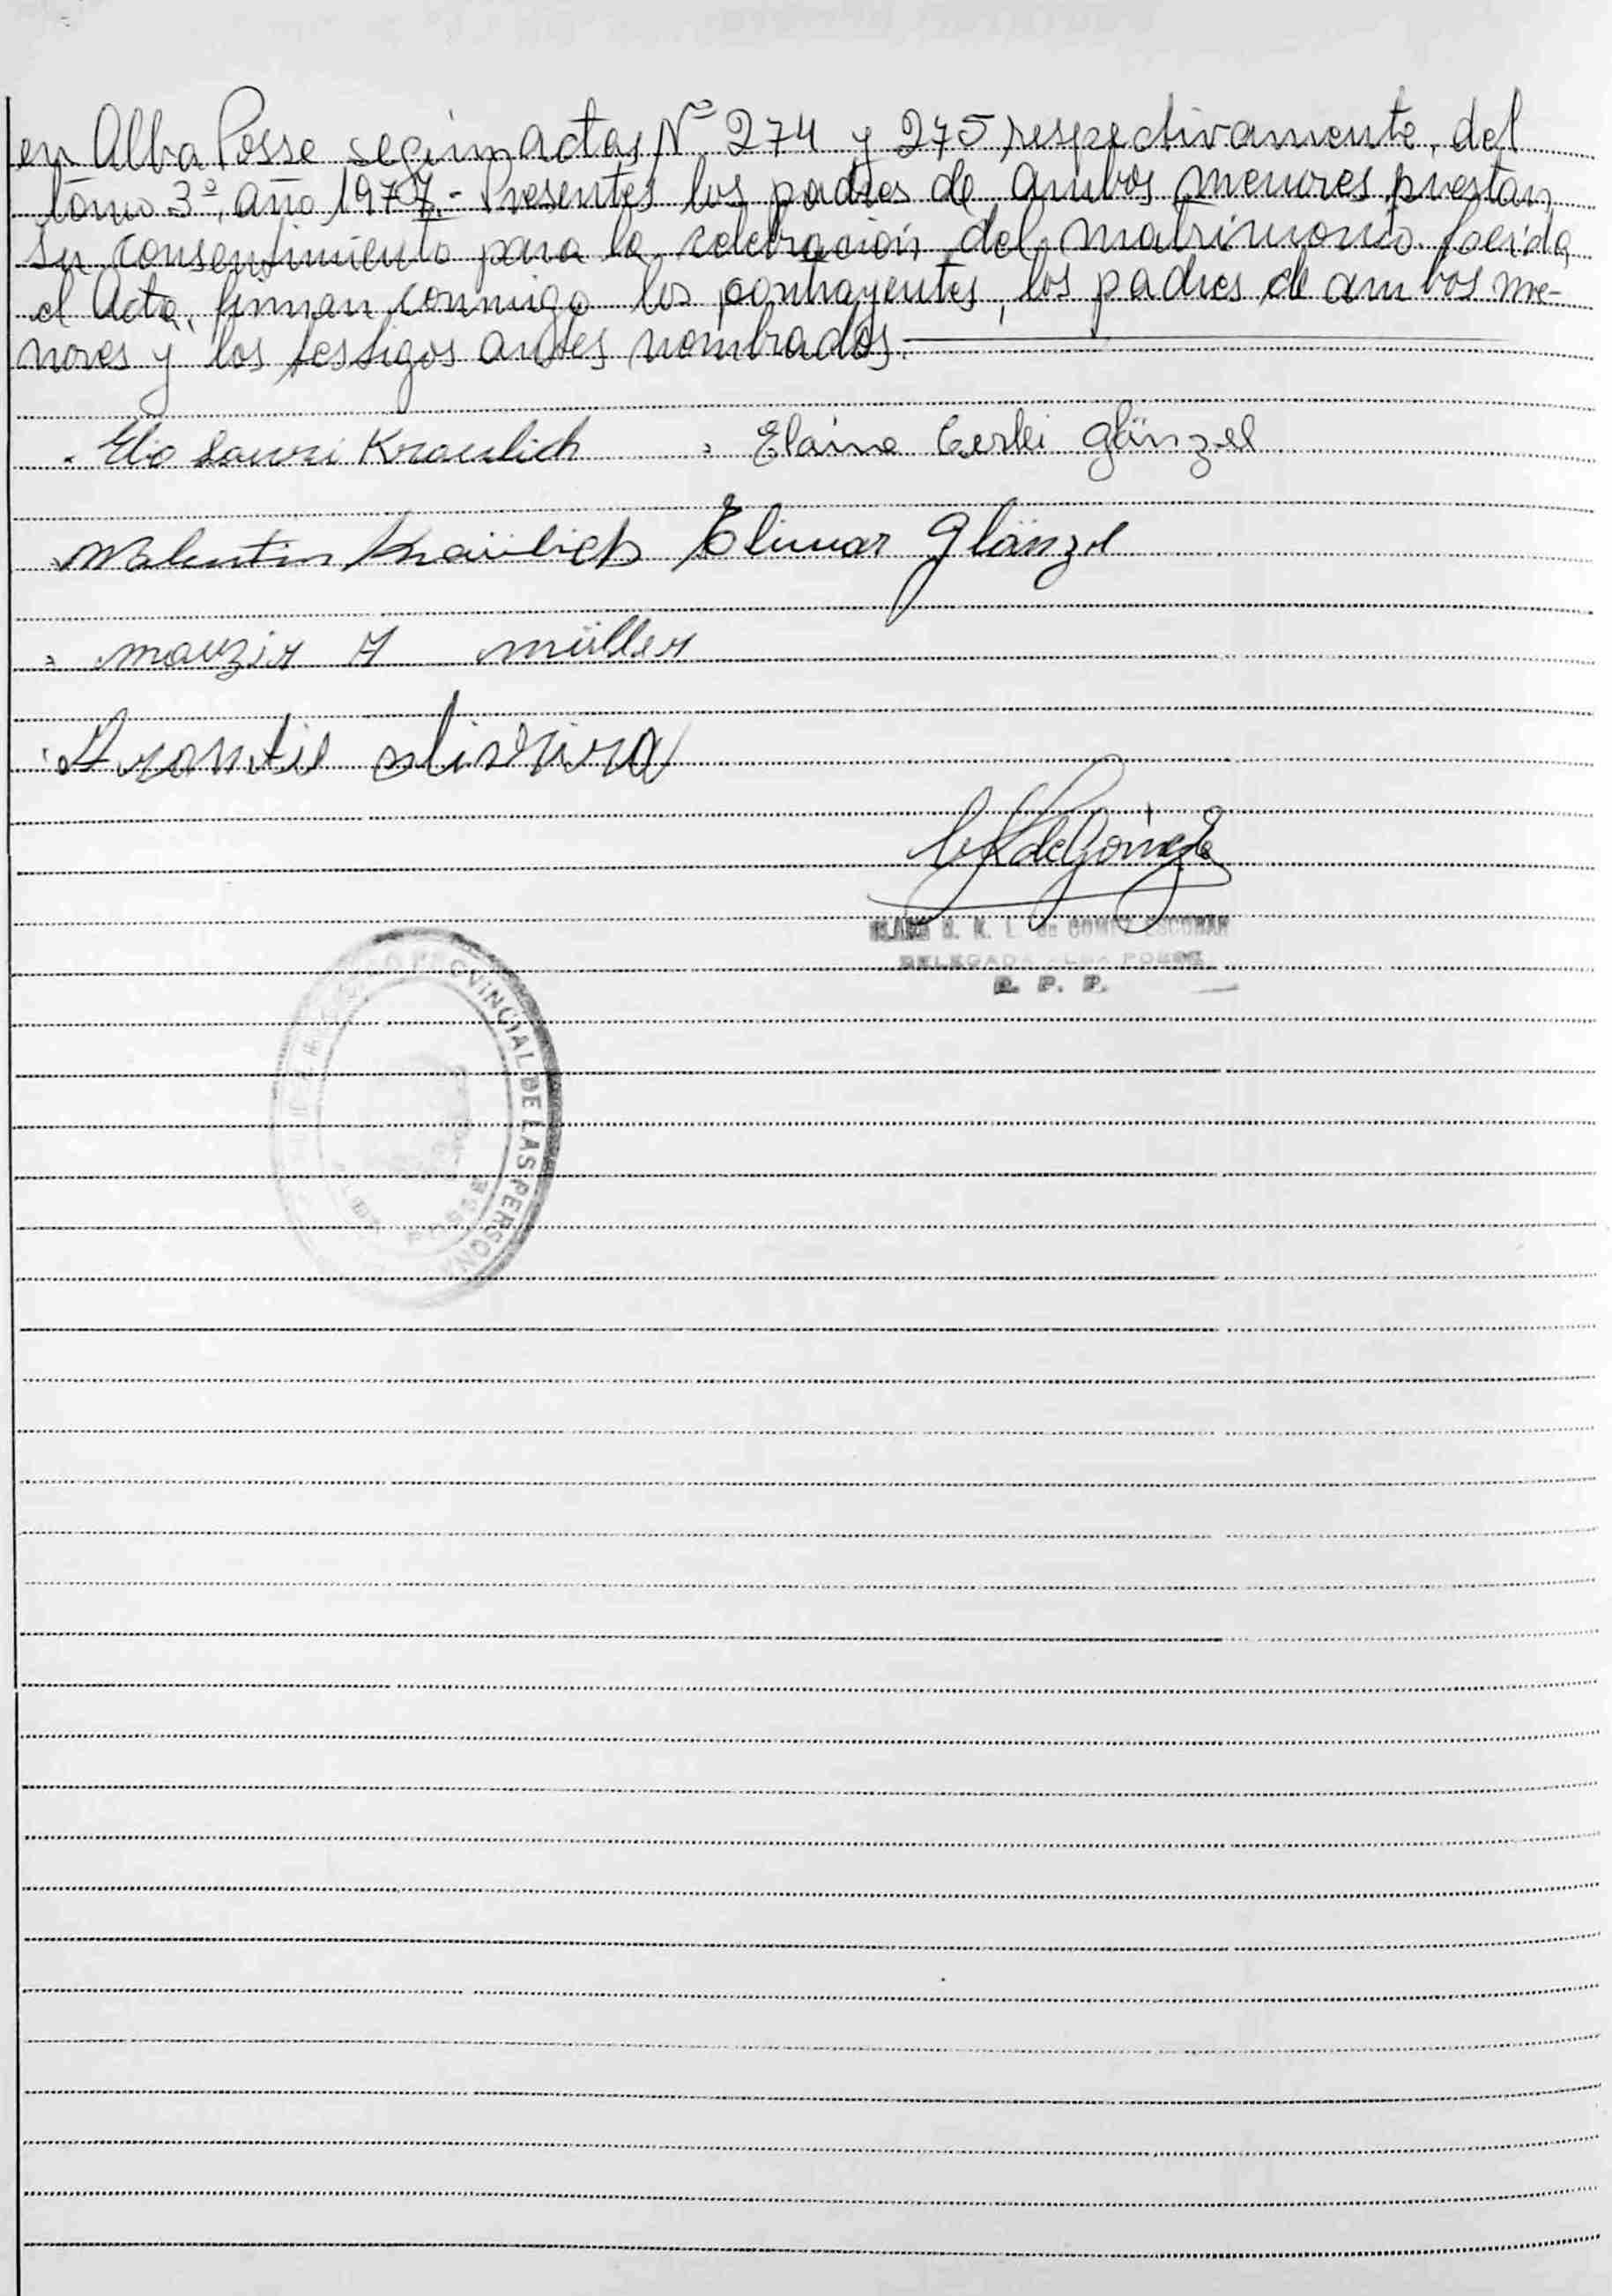 en Alba Posse según actas Nº 274 y 275 respectivamente, del
tomo 3º, año 1977.- Presentes los padres de ambos menores prestan
su consentimiento para la celebración del matrimonio. Leída
el Acta, firman conmigo los contrayentes, los padres de ambos me-
nores y los testigos antes nombrados.
Elio Lauri Kraulich Elaine Gerlei Glänzel
Walentin Kraülich Elimar Glänzel
mauzir A müller
Arontil oliveira
de GOMEZ ESCOBAR
DELEGADA ALBA POSSE
R. P. P.
PROVINCIAL DE LAS PERSONA
POSSE